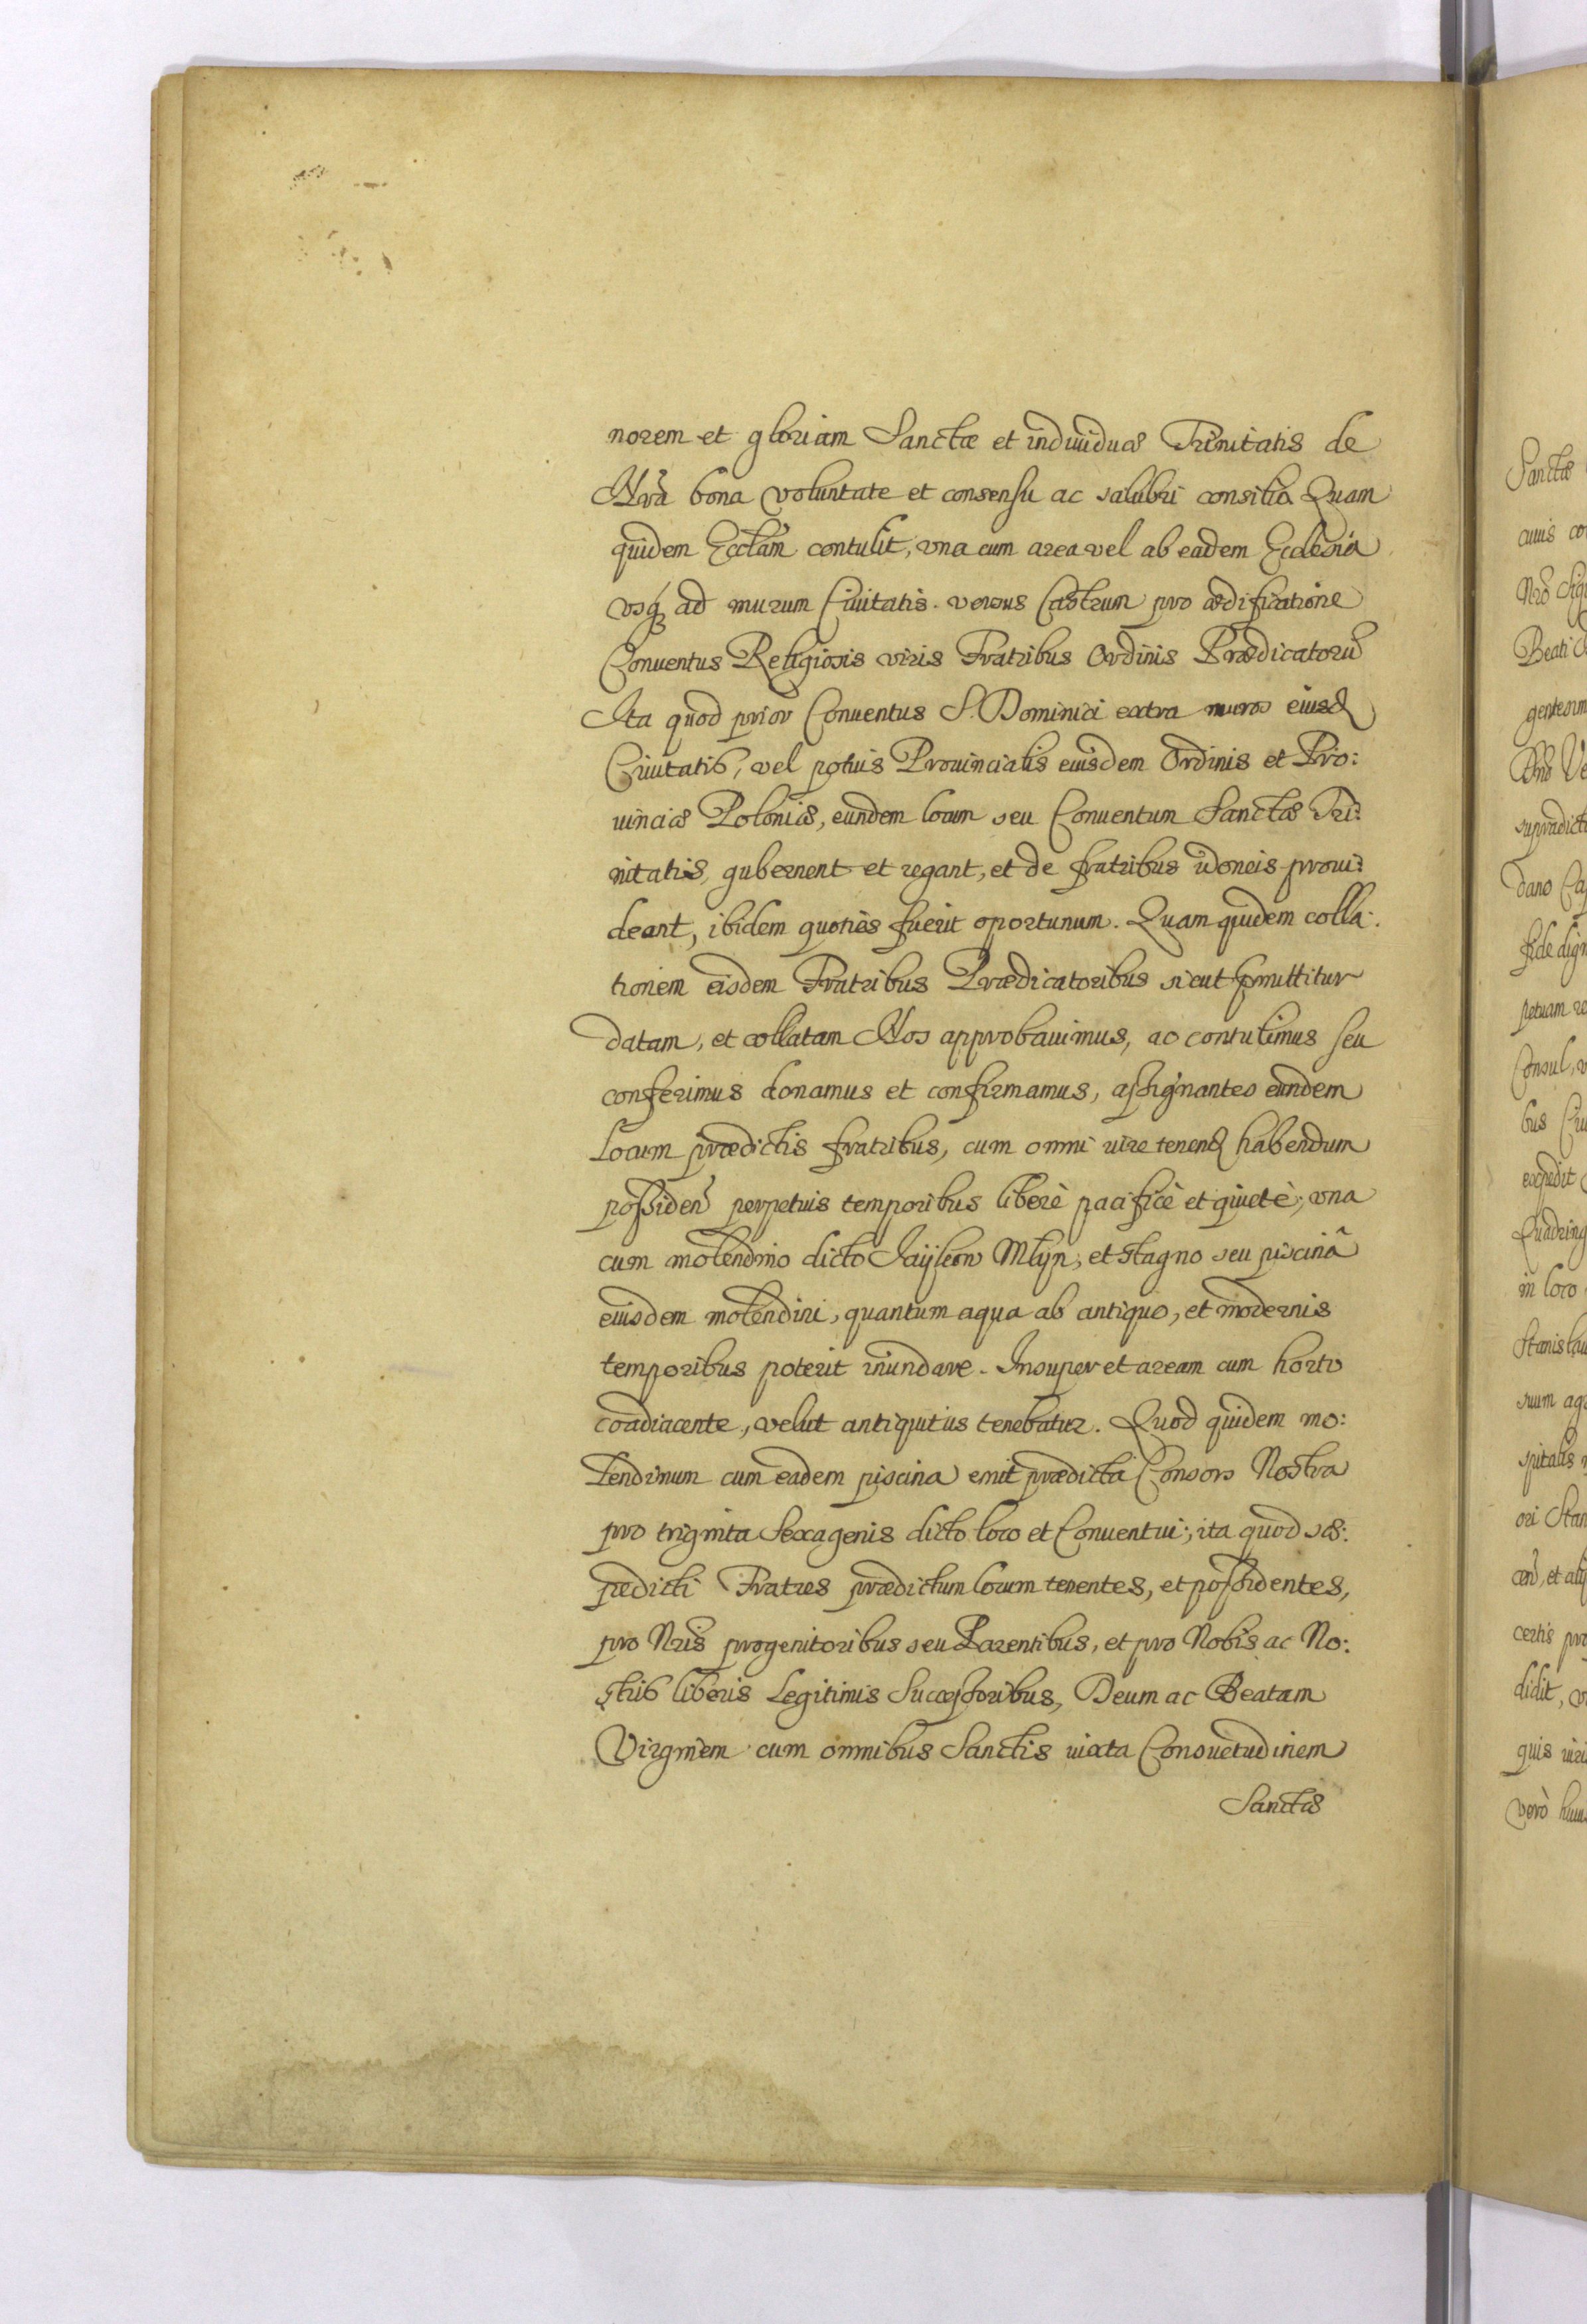 norem et gloriam Sanctæ et indiuiduæ Trinitatis de
Nr̃a bona voluntate et consensu ac salubri consilio Quam
quidem Eccl̃am contulit, vna cum area vel ab eadem Ecclesia
vsq₃ ad murum Ciuitatis versus Castrum pro ædificatione
Conuentus Religiosis viris Fratribus Ordinis Prædicatorũ
Ita quod prior Conuentus S. Dominici extra muros eiusd
Ciuitatis, vel potius Prouincialis eiusdem Ordinis et Pro:
uinciæ Poloniæ, eundem locum seu Conuentum Sanctæ Tri:
nitatis, gubernent et regant, et de fratribus idoneis proui:
deant, ibidem quoties fuerit oportunum. Quam quidem colla:
tionem eisdem Fratribus Prædicatoribus sicut p̃mittitur
datam, et collatam Nos approbauimus, ac contulimus seu
conferimus donamus et confirmamus, assignantes eundem
Locum prædictis fratribus, cum omni iure tenend habendum
possiden̄ perpetuis temporibus liberè pacificè et quietè, vna
cum molendino dicto Mlyn, et stagno seu piscinâ
eiusdem molendini, quantum aqua ab antiquo, et modernis
temporibus poterit inundare. Insuper et aream cum horto
coadiacente, velut antiquitus tenebatur. Quod quidem mo:
lendinum cum eadem piscina emit prædicta Consors Nostra
pro triginta Sexagenis dicto loco et Conuentui, ita quod sæ:
pedicti Fratres prædictum locum tenentes, et possidentes,
pro Nr̃is progenitoribus seu Parentibus, et pro Nobis ac No:
stris liberis Legitimis Successoribus, Deum ac Beatam
Virginem cum omnibus Sanctis iuxta Consuetudinem
Sanctæ